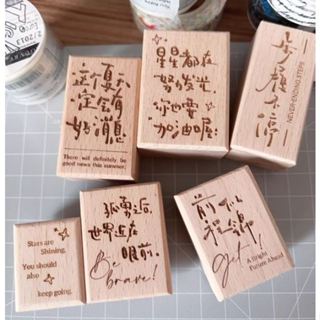 这个夏天
一定会有
好消息
There will definitely be
good news this summer.
星星都在
努力发光
你也要
加油喔!
步履不停
NEVER-ENDING STEPS
Stars are
Shining,
You should
also
keep going.
孤勇之后,
世界尽在
眼前.
Be
brave!
前似
程锦
get!
A Bright
Future Ahead